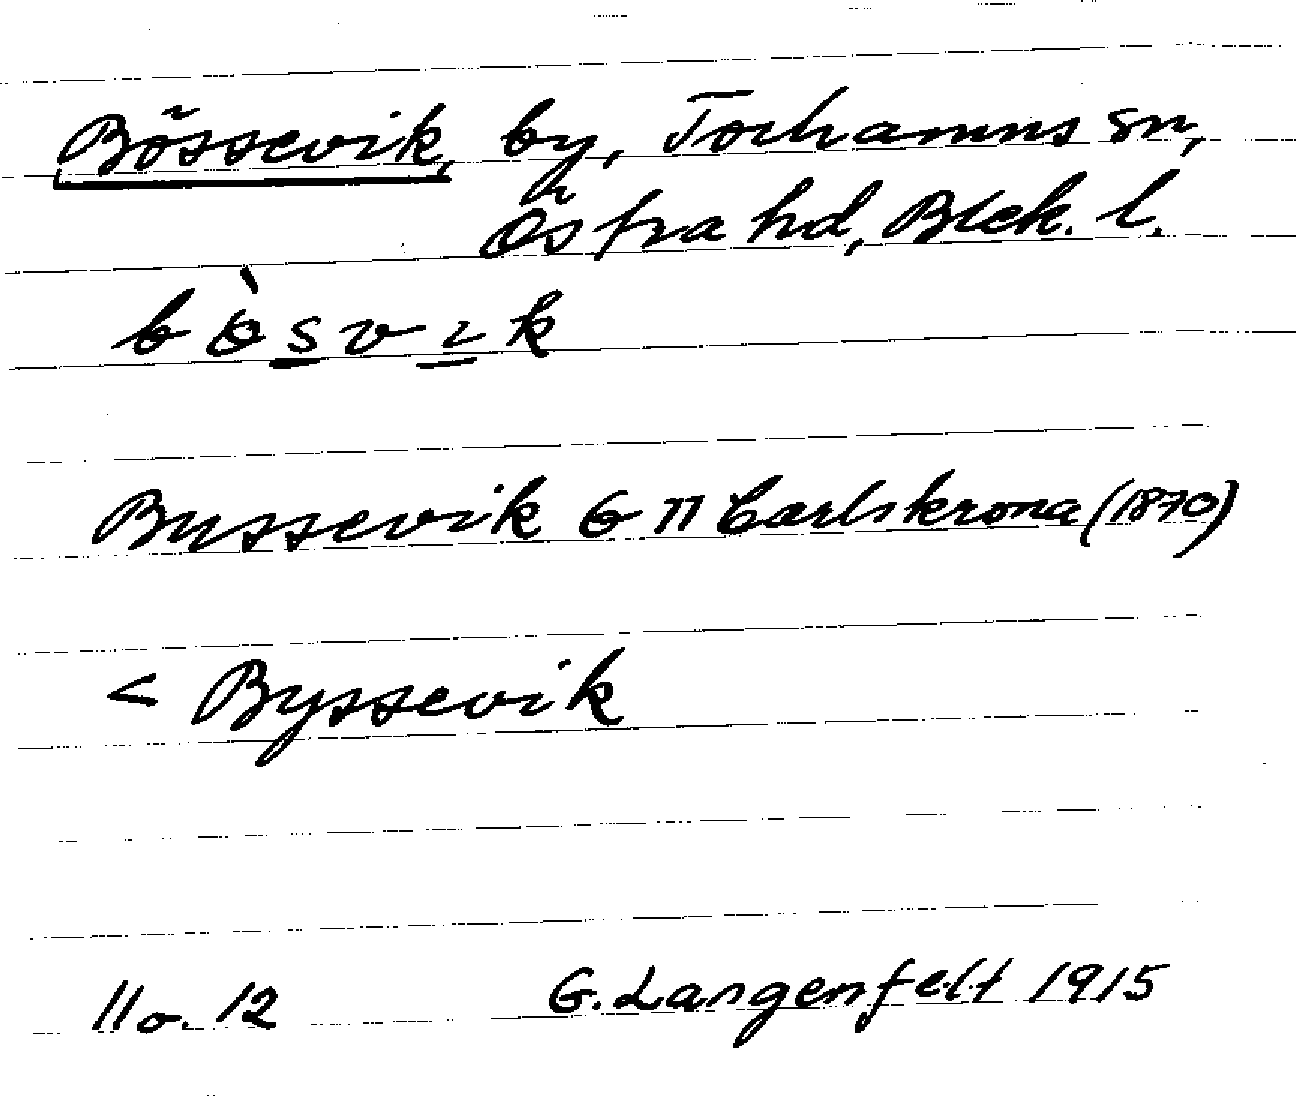 Bössevik, by, Torhamns sn,
Östra hd, Blek. l.
bòsvık
Byssevik G II Carlskrona (1870)
< Byssevik
11 o. 12 G. Langenfelt 1915